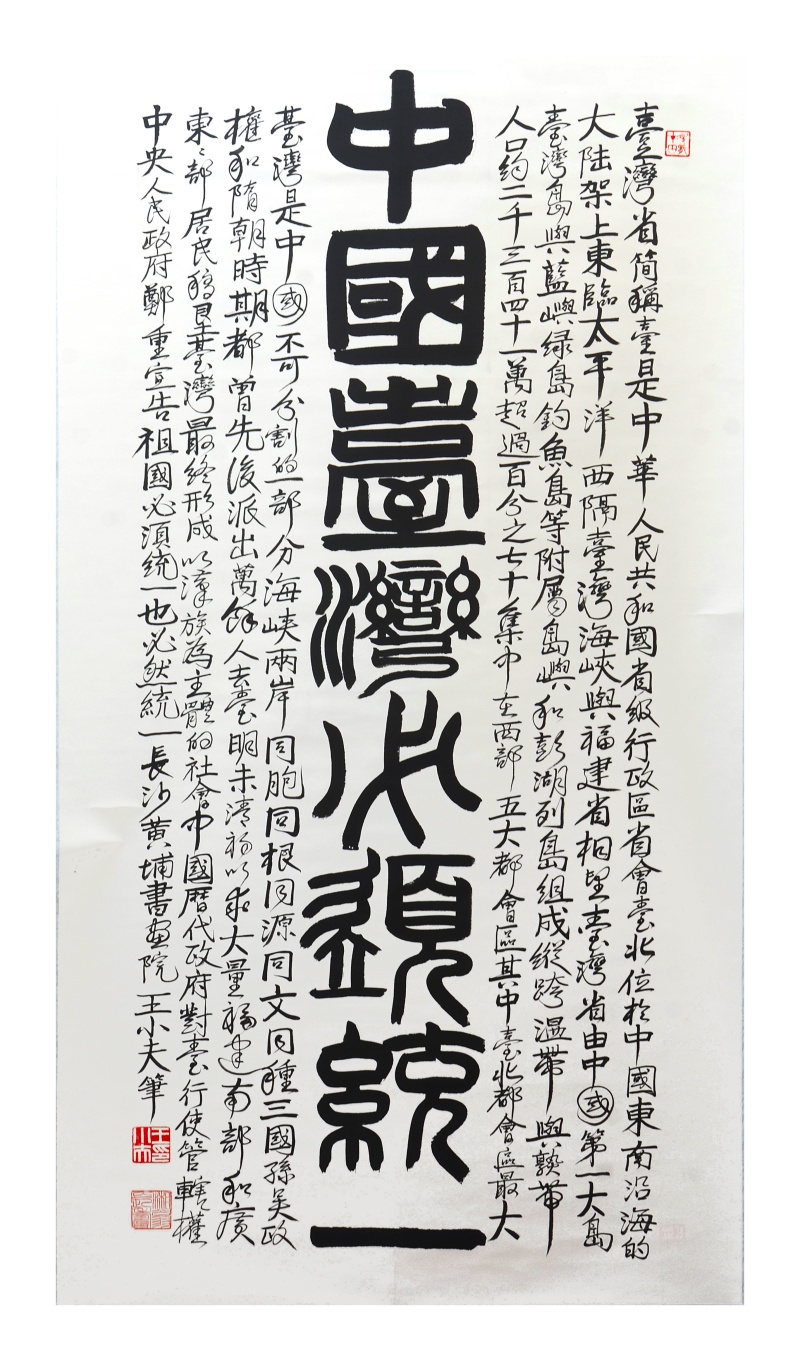 臺灣省简稱臺是中華人民共和國省级行政區省會臺北位於中國東南沿海的
大陸架上東臨太平洋西隔臺灣海峽與福建省相望臺灣省由中國第一大島
臺灣島與藍嶼绿島釣魚島等附屬島嶼和彭湖列島組成縱跨温帶與熱帶
人口約二千三百四十一萬超過百分之七十集中在西部五大都會區其中臺北都會區最大
中國臺灣必須統一
臺灣是中國不可分割的一部分海峡兩岸同胞同根同源同文同種三國孫吴政
權和隋朝時期都曾先後派出萬餘人去臺明末清初以來大量福建南部和廣
東々部居民移墾臺灣最终形成以漢族為主體的社會中國曆代政府對臺行使管轄權
中央人民政府鄭重宣告祖國必須統一也必然統一長沙黄埔書画院王小夫筆
王小夫印